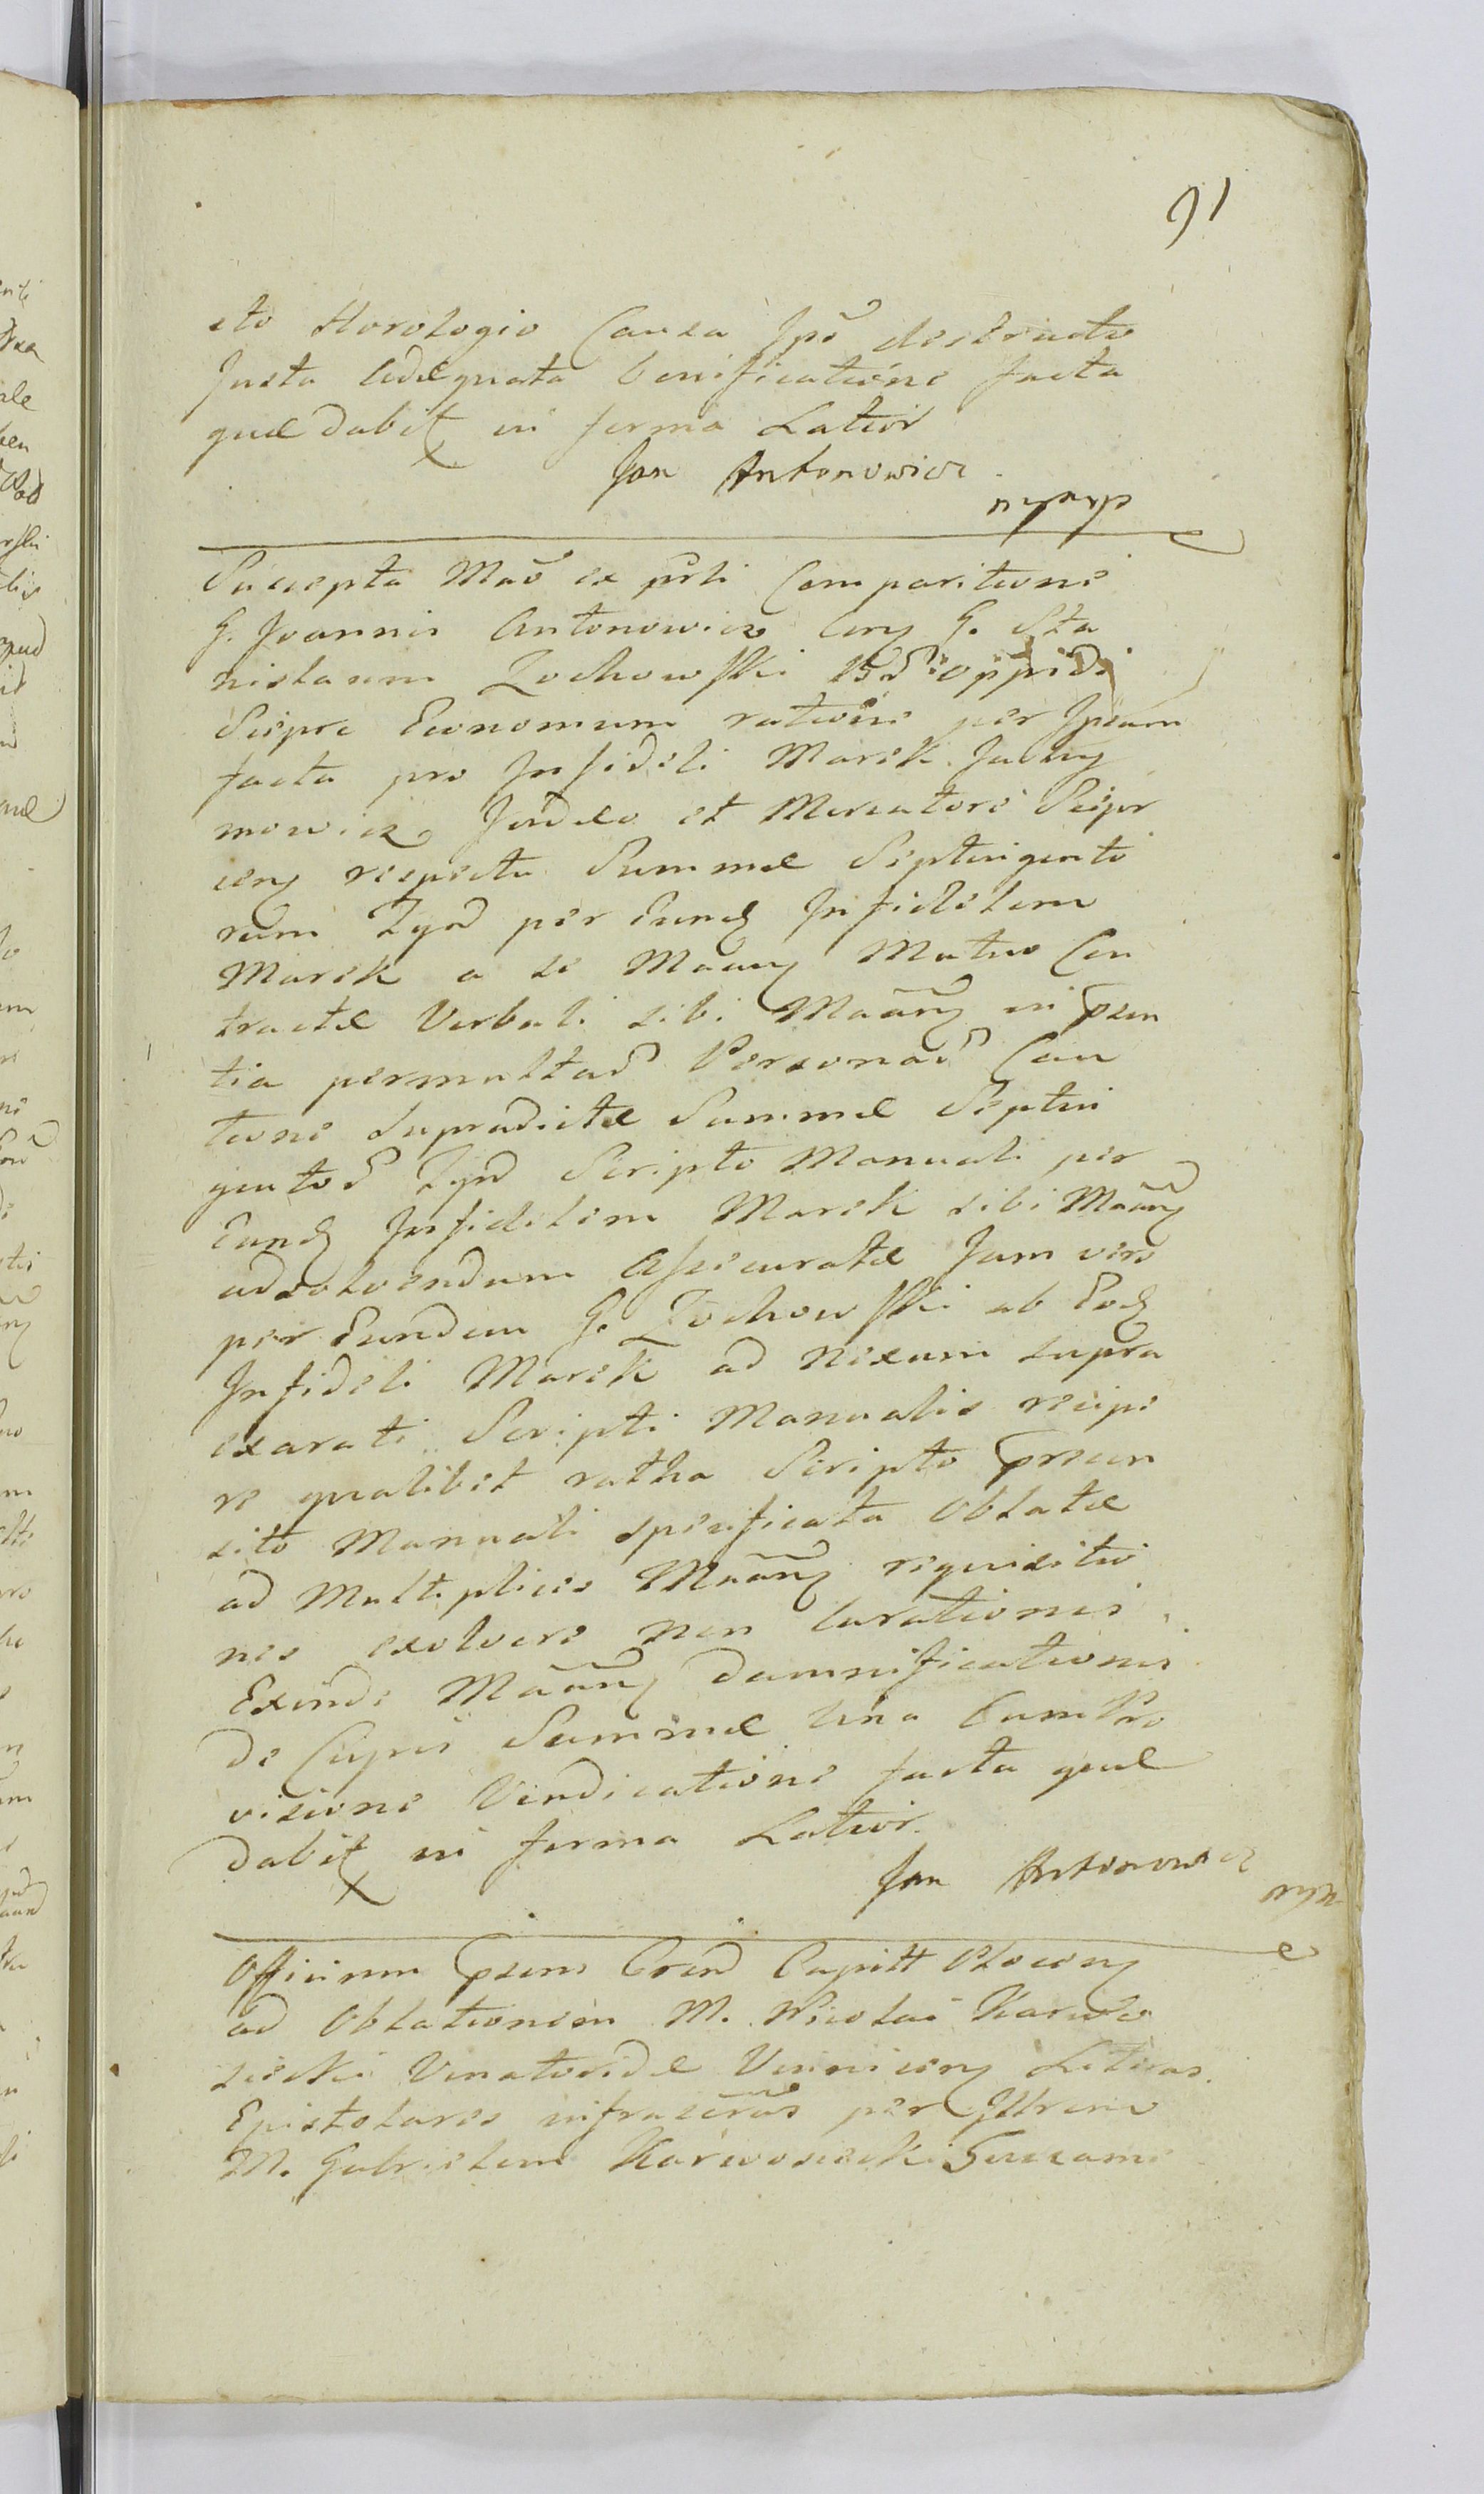 91
sto Horologio Causa Ipõ destructo
Justa Adæquata bonificatione facta
quæ dabit in forma Latiori
Jan Antonowicz
Suscepta Maõ ex psli Comparitione
G. Joannis Antonowicz G. Sta
nislaum Zochowski oppidi
Sierpc Economum ratione per Ipsum
facta pro Infideli Marek
mowicz Judæo et Mercatore Sierpr
ceny respectu Summæ Septingento
rum per Eund Infidelem
Marek a se Maany Mutuo Con
tractæ Verbali sibi Maany in psen
tia permultad Personad Cau
tione Supradictæ Summæ Septin
gentod Scripto Manuali per
Eund Infidelem Marek sibi Maany
adsolvendum Assecuratæ Jam vero
per Eundem G. Zochowski ab Eod
Infideli Marek ad nexum supra
exarati Scripti Manualis recipe
re qualibet ratha Scripto precen
sito Manuali specificata Oblatæ
ad Multiplices Maany requisitio
nes exolvere non Curationis
Exinde Maany Damnificationis
de Cujus Summæ Una Cum Pro
visione Vindicatione facta quæ
dabit in forma Latiori
Jan Antonowicz
Officium psens Capitt Plocens
ad Oblationem M. Nicolai Karwo
siecki Venatoridæ Literas
Epistolares infrascras per
M. Gabrielem Karwosiecki Succam